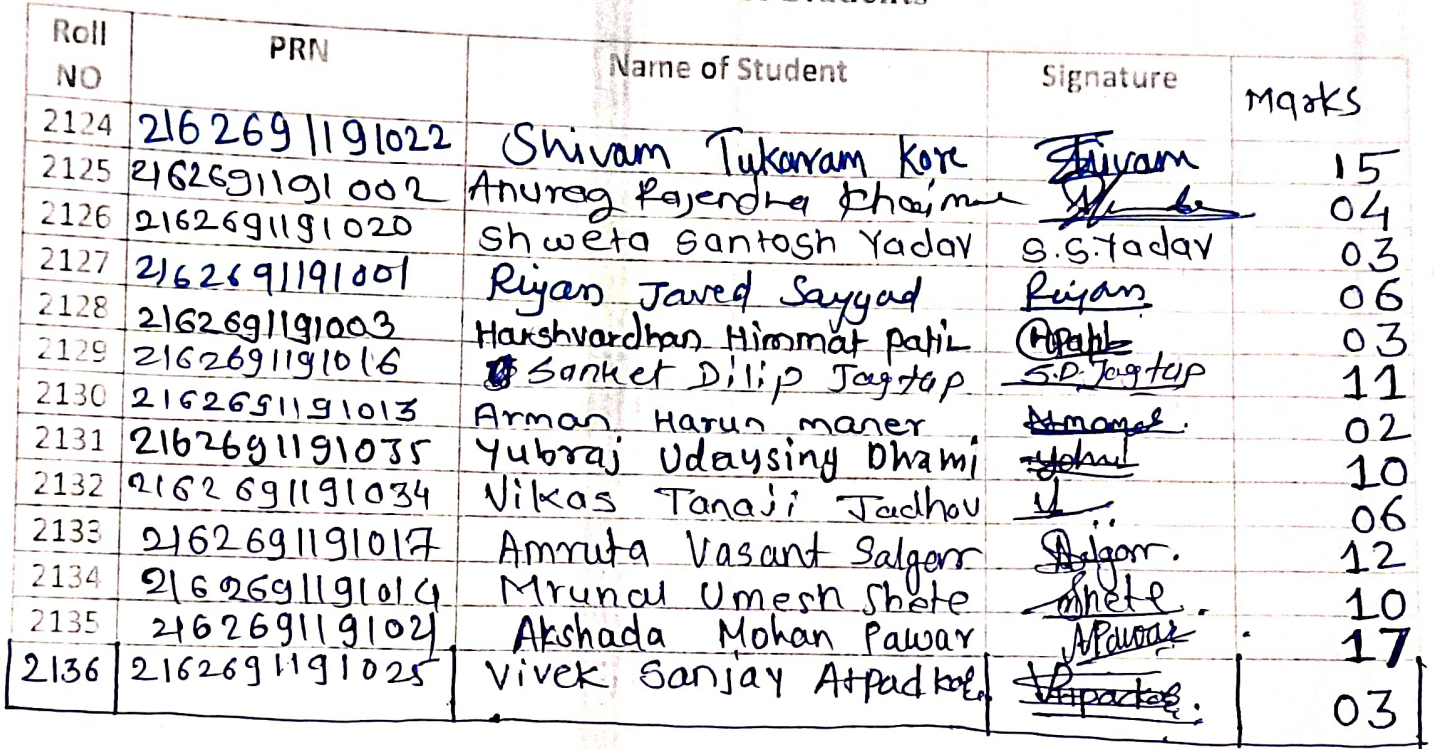 Students
Roll NO PRN Name of Student Signature Marks
2124 2162691191022 Shivam Tukaram Kore Shivam 15
2125 2162691191002 Anurag Rajendra 04
2126 2162691191020 Shweta Santosh Yadav S.S.Yadav 03
2127 2162691191001 Riyan Javed Sayyad Riyan 06
2128 2162691191003 Harshvardhan Himmat patil HPatil 03
2129 2162691191016 Sanket Dilip Jagtap S.D.Jagtap 11
2130 2162691191013 Arman Harun maner 02
2131 2162691191035 Yubraj Udaysing Dhami 10
2132 2162691191034 Vikas Tanaji Jadhav 06
2133 2162691191017 Amruta Vasant Salgarr 12
2134 2162691191014 Mrunal Umesh Shete Shete. 10
2135 2162691191021 Akshada Mohan Pawar APawar 17
2136 2162691191025 Vivek Sanjay 03